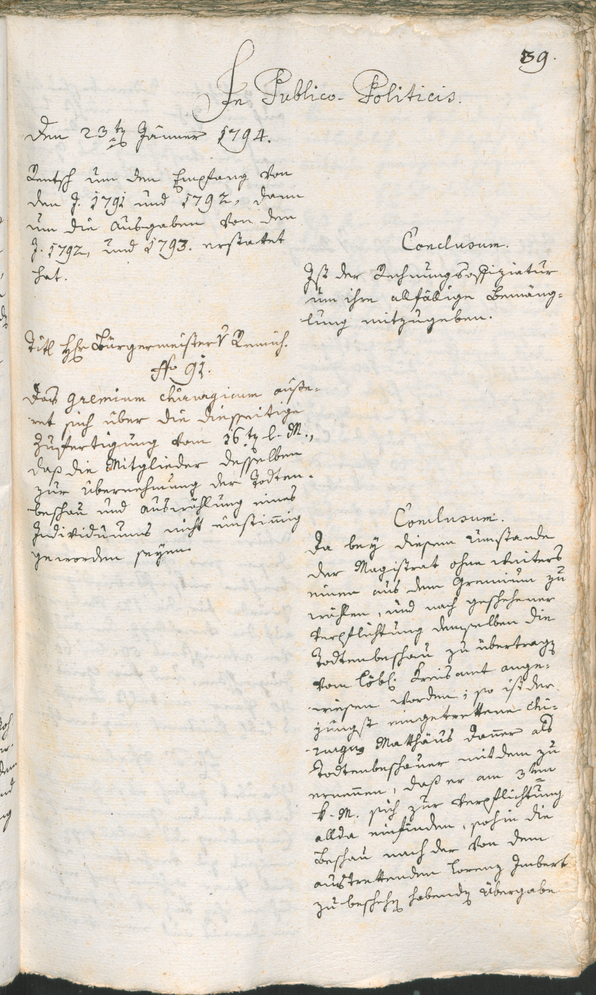 39.
In Publico-Politicis.
den 23ten Jänner 1794.
Rentsch um den Empfang von
den J. 1791 und 1792, dann
um die Ausgaben von den
J. 1792, und 1793. erstattet
hat.
Conclusum.
Ist der Rechnungsoffiziatur
um ihre allfällige Bemäng-
lung mitzugeben.
Titl Hhr Bürgermeister v Remich.
No 91.
Das Gremium chirurgicum äuße-
ret sich über die diesseitige
Zufertigung vom 16ten l. M.,
daß die Mitglieder desselben
zur Übernehmung der Todten-
beschau und Auswählung eines
Individuums nicht einstimmig
geworden seyen.
Conclusum.
Da bey diesem Umstande
der Magistrat ohne weiters
einen aus dem Gremium zu
wählen, und nach geschehener
Verpflichtung demselben die
Todtenbeschau zu übertragen
vom löbl. Kreisamt ange-
wiesen worden; so ist der
jüngst eingetrettene Chi-
rurgus Mathäus Danner als
Todtenbeschauer mit dem zu
ernennen, daß er am 3ten
k. M. sich zur Verpflichtung
allda einfinden, sohin die
Beschau nach der von dem
austrettenden Lorenz Imbert
zu beschehen habenden Übergabe